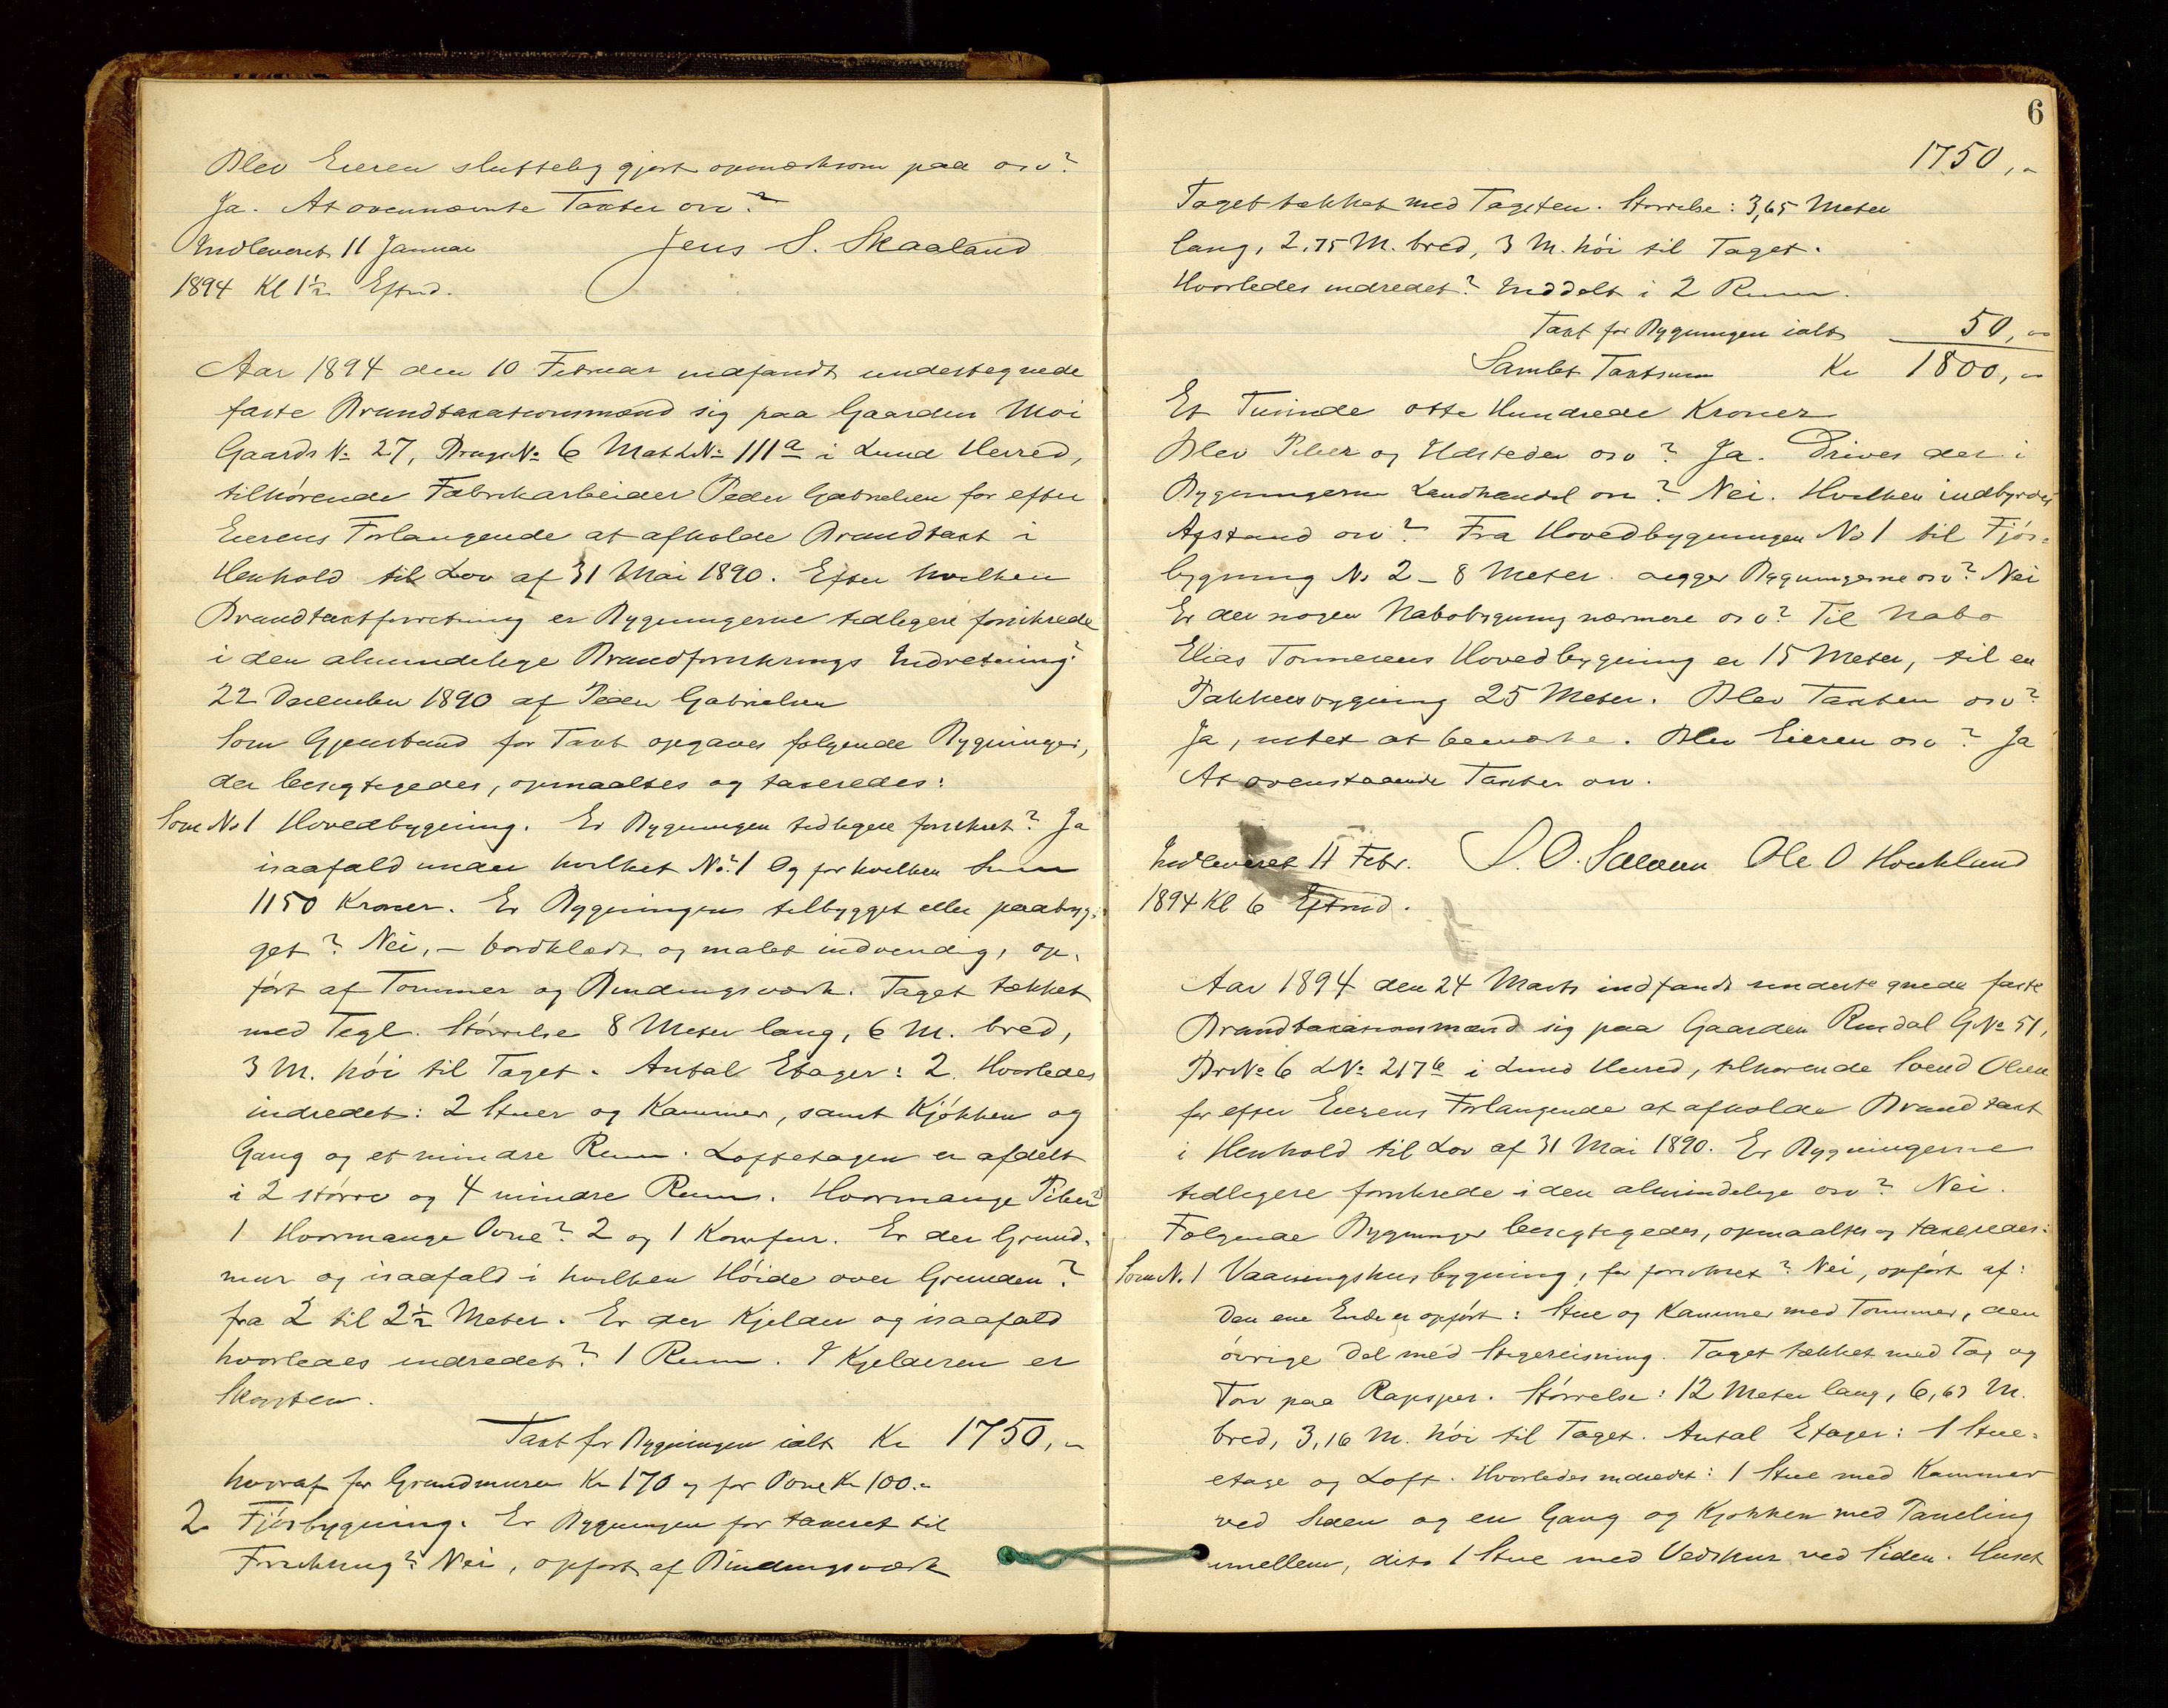 Blev Eieren sluttelig gjort opmærksom paa osv?
Ja. At ovennævnte Taxter osv?
Indleveret 11 Januar Jens S. Skaaland
1894 Kl 1½ Eftmd.
Aar 1894 den 10 Februar indfandt undertegnede
faste Brandtaxationsmænd sig paa Gaarden Moi
Gaards № 27, Brugs № 6 Mat L № 111a i Lund Herred,
tilhørende Fabrikarbeider Peder Gabrielsen for efter
Eierens Forlangende at afholde Brandtaxt i
Henhold til Lov af 31 Mai 1890. Efter hvilken
Brandtaxtforretning er Bygningerne tidligere forsikrede
i den almindelige Brandforsikrings Indretning?
22 December 1890 af Peder Gabrielsen
Som Gjenstand for Taxt opgaves følgende Bygninger,
der besigtigedes, opmaaltes og taxeredes:
Som No 1 Hovedbygning. Er Bygningen tidligere forsikret? Ja
isaafald under hvilket No? 1 Og for hvilken Sum
1150 Kroner. Er Bygningens tilbygget eller paabyg-
get? Nei, – bordklædt og malet indvendig, op-
ført af Tømmer og Bindingsværk. Taget tækket
med Tegl. Størrelse 8 Meter lang, 6 M. bred,
3 M. høi til Taget. Antal Etager: 2. Hvorledes
indredet: 2 Stuer og Kammer, samt Kjøkken og
Gang og et mindre Rum. Loftetagen er afdelt
i 2 større og 4 mindre Rum. Hvormange Piber?
1 Hvormange Ovne? 2 og 1 Komfur. Er der Grund-
mur og isaafald i hvilken Høide over Grunden?
fra 2 til 2½ Meter. Er der Kjelder og isaafald
hvorledes indredet? 1 Rum. I Kjelderen er
Skorsten.
Taxt for Bygningen ialt Kr 1750,-
hvoraf for Grundmuren Kr 170 og for Ovne Kr 100.-
2 Fjøsbygning. Er Bygningen før taxeret til
Forsikring? Nei, opført af Bindingsværk
6
1750,-
Taget tækket med Tagsten. Størrelse: 3,65 Meter
lang, 2,75 M. bred, 3 M. høi til Taget.
Hvorledes indredet? Inddelt i 2 Rum.
Taxt for Bygningen ialt 50,-
Samlet Taxtsum Kr 1800,-
Et Tusinde otte Hundrede Kroner
Blev Piber og Ildsteder osv? Ja. Drives der i
Bygningerne Landhandel osv? Nei. Hvilken indbyrdes
Afstand osv? Fra Hovedbygningen No 1 til Fjøs-
bygning No 2 – 8 Meter. Ligger Bygningerne osv? Nei
Er der nogen Nabobygning nærmere osv? Til Nabo
Elias Tønnesens Hovedbygning er 15 Meter, til en
Pakhusbygning 25 Meter. Blev Taxten osv?
Ja, intet at bemærke. Blev Eieren osv? Ja
At ovenstaaende Taxter osv.
Indleveret 11 Febr. Ole O
1894 Kl 6 Eftmd.
Aar 1894 den 24 Marts indfandt undertegnede faste
Brandtaxationsmænd sig paa Gaarden Rusdal G № 51,
Br № 6 L № 217b i Lund Herred, tilhørende Svend Olsen
for efter Eierens Forlangende at afholde Brandtaxt
i Henhold til Lov af 31 Mai 1890. Er Bygningerne
tidligere forsikrede i den almindelige osv? Nei.
Følgende Bygninger besigtigedes, opmaaltes og taxeredes:
Som No. 1 Vaaningshusbygning, før forsikret? Nei, opført af:
Den ene Ende er opført: Stue og Kammer med Tømmer, den
øvrige Del med Stigereisning. Taget tækket med Tag og
Torv paa . Størrelse: 12 Meter lang, 6,63 M.
bred, 3,16 M. høi til Taget. Antal Etager: 1 Stue-
etage og Loft. Hvorledes indredet: 1 Stue med Kammer
ved Siden og en Gang og Kjøkken med Paneling
imellem, dito 1 Stue med Vedskur ved Siden. Huset